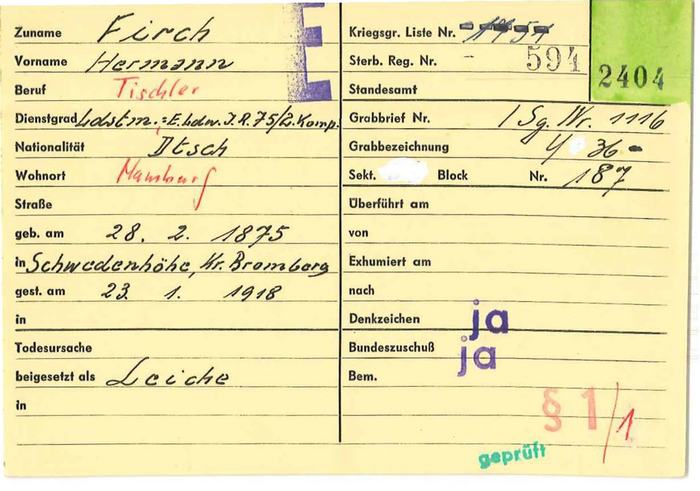 Zuname Firch
Vorname Hermann
Beruf Tischler
Dienstgrad Ldstm.,=E.Ldw.J.R.75/2.Komp.
Nationalität Dtsch
Wohnort
Straße
geb. am 28. 2. 1875
in Schwedenhöhe, Kr. Bromberg
gest. am 23. 1. 1918
in
Todesursache
beigesetzt als Leiche
in
E
Kriegsgr. Liste Nr.
Sterb. Reg. Nr. - 594
2404
Standesamt
Grabbrief Nr. / Sg. Nr. 1116
Grabbezeichnung Y 36 -
Sekt. Block Nr. 187
Überführt am
von
Exhumiert am
nach
Denkzeichen ja
Bundeszuschuß ja
Bem.
§ 1/1
geprüft